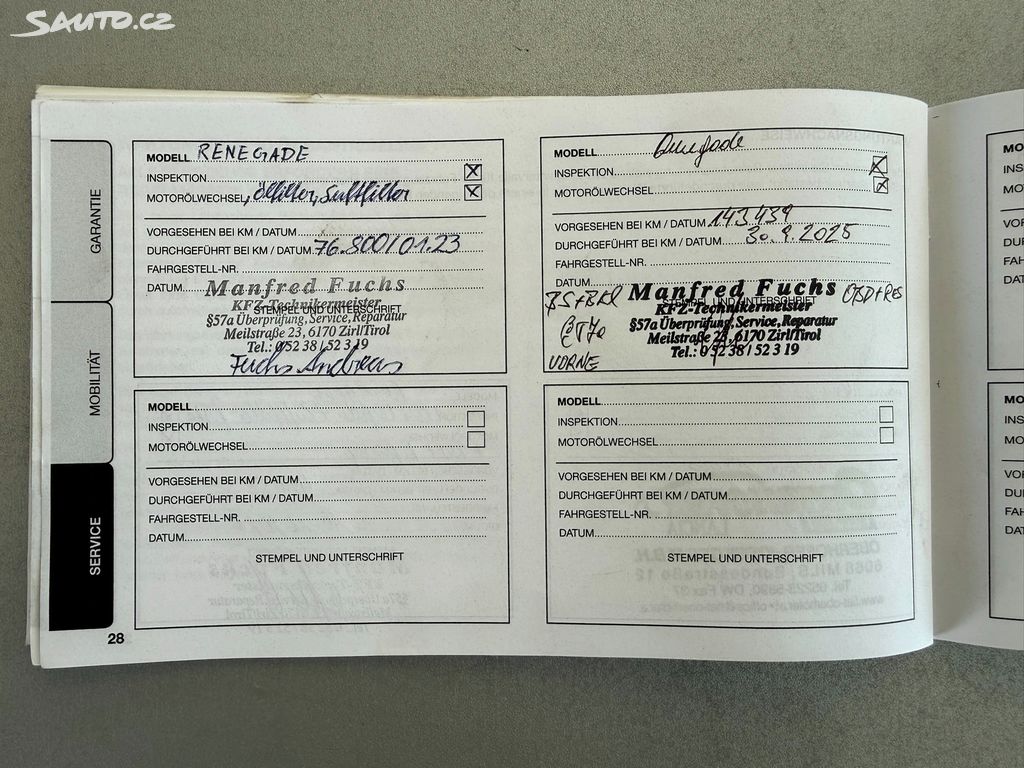 SAUTO.CZ
GARANTIE
MOBILITÄT
SERVICE
MODELL RENEGADE
INSPEKTION X
MOTORÖLWECHSEL, Ölfilter, Luftfilter X
VORGESEHEN BEI KM / DATUM
DURCHGEFÜHRT BEI KM / DATUM 76.800/01.23
FAHRGESTELL-NR.
DATUM
Manfred Fuchs
KFZ-Technikermeister
STEMPEL UND UNTERSCHRIFT
§57a Überprüfung, Service, Reparatur
Meilstraße 23, 6170 Zirl/Tirol
Tel.: 0 52 38 / 52 3 19
Fuchs Andreas
MODELL Renegade
INSPEKTION X
MOTORÖLWECHSEL X
VORGESEHEN BEI KM / DATUM 143.439
DURCHGEFÜHRT BEI KM / DATUM 30.9.2025
FAHRGESTELL-NR.
DATUM
Manfred Fuchs
STEMPEL UND UNTERSCHRIFT
KFZ-Technikermeister
§57a Überprüfung, Service, Reparatur
Meilstraße 23, 6170 Zirl/Tirol
Tel.: 0 52 38 / 52 3 19
VORNE
MODELL
INSPEKTION
MOTORÖLWECHSEL
VORGESEHEN BEI KM / DATUM
DURCHGEFÜHRT BEI KM / DATUM
FAHRGESTELL-NR.
DATUM
STEMPEL UND UNTERSCHRIFT
MODELL
INSPEKTION
MOTORÖLWECHSEL
VORGESEHEN BEI KM / DATUM
DURCHGEFÜHRT BEI KM / DATUM
FAHRGESTELL-NR.
DATUM
STEMPEL UND UNTERSCHRIFT
28